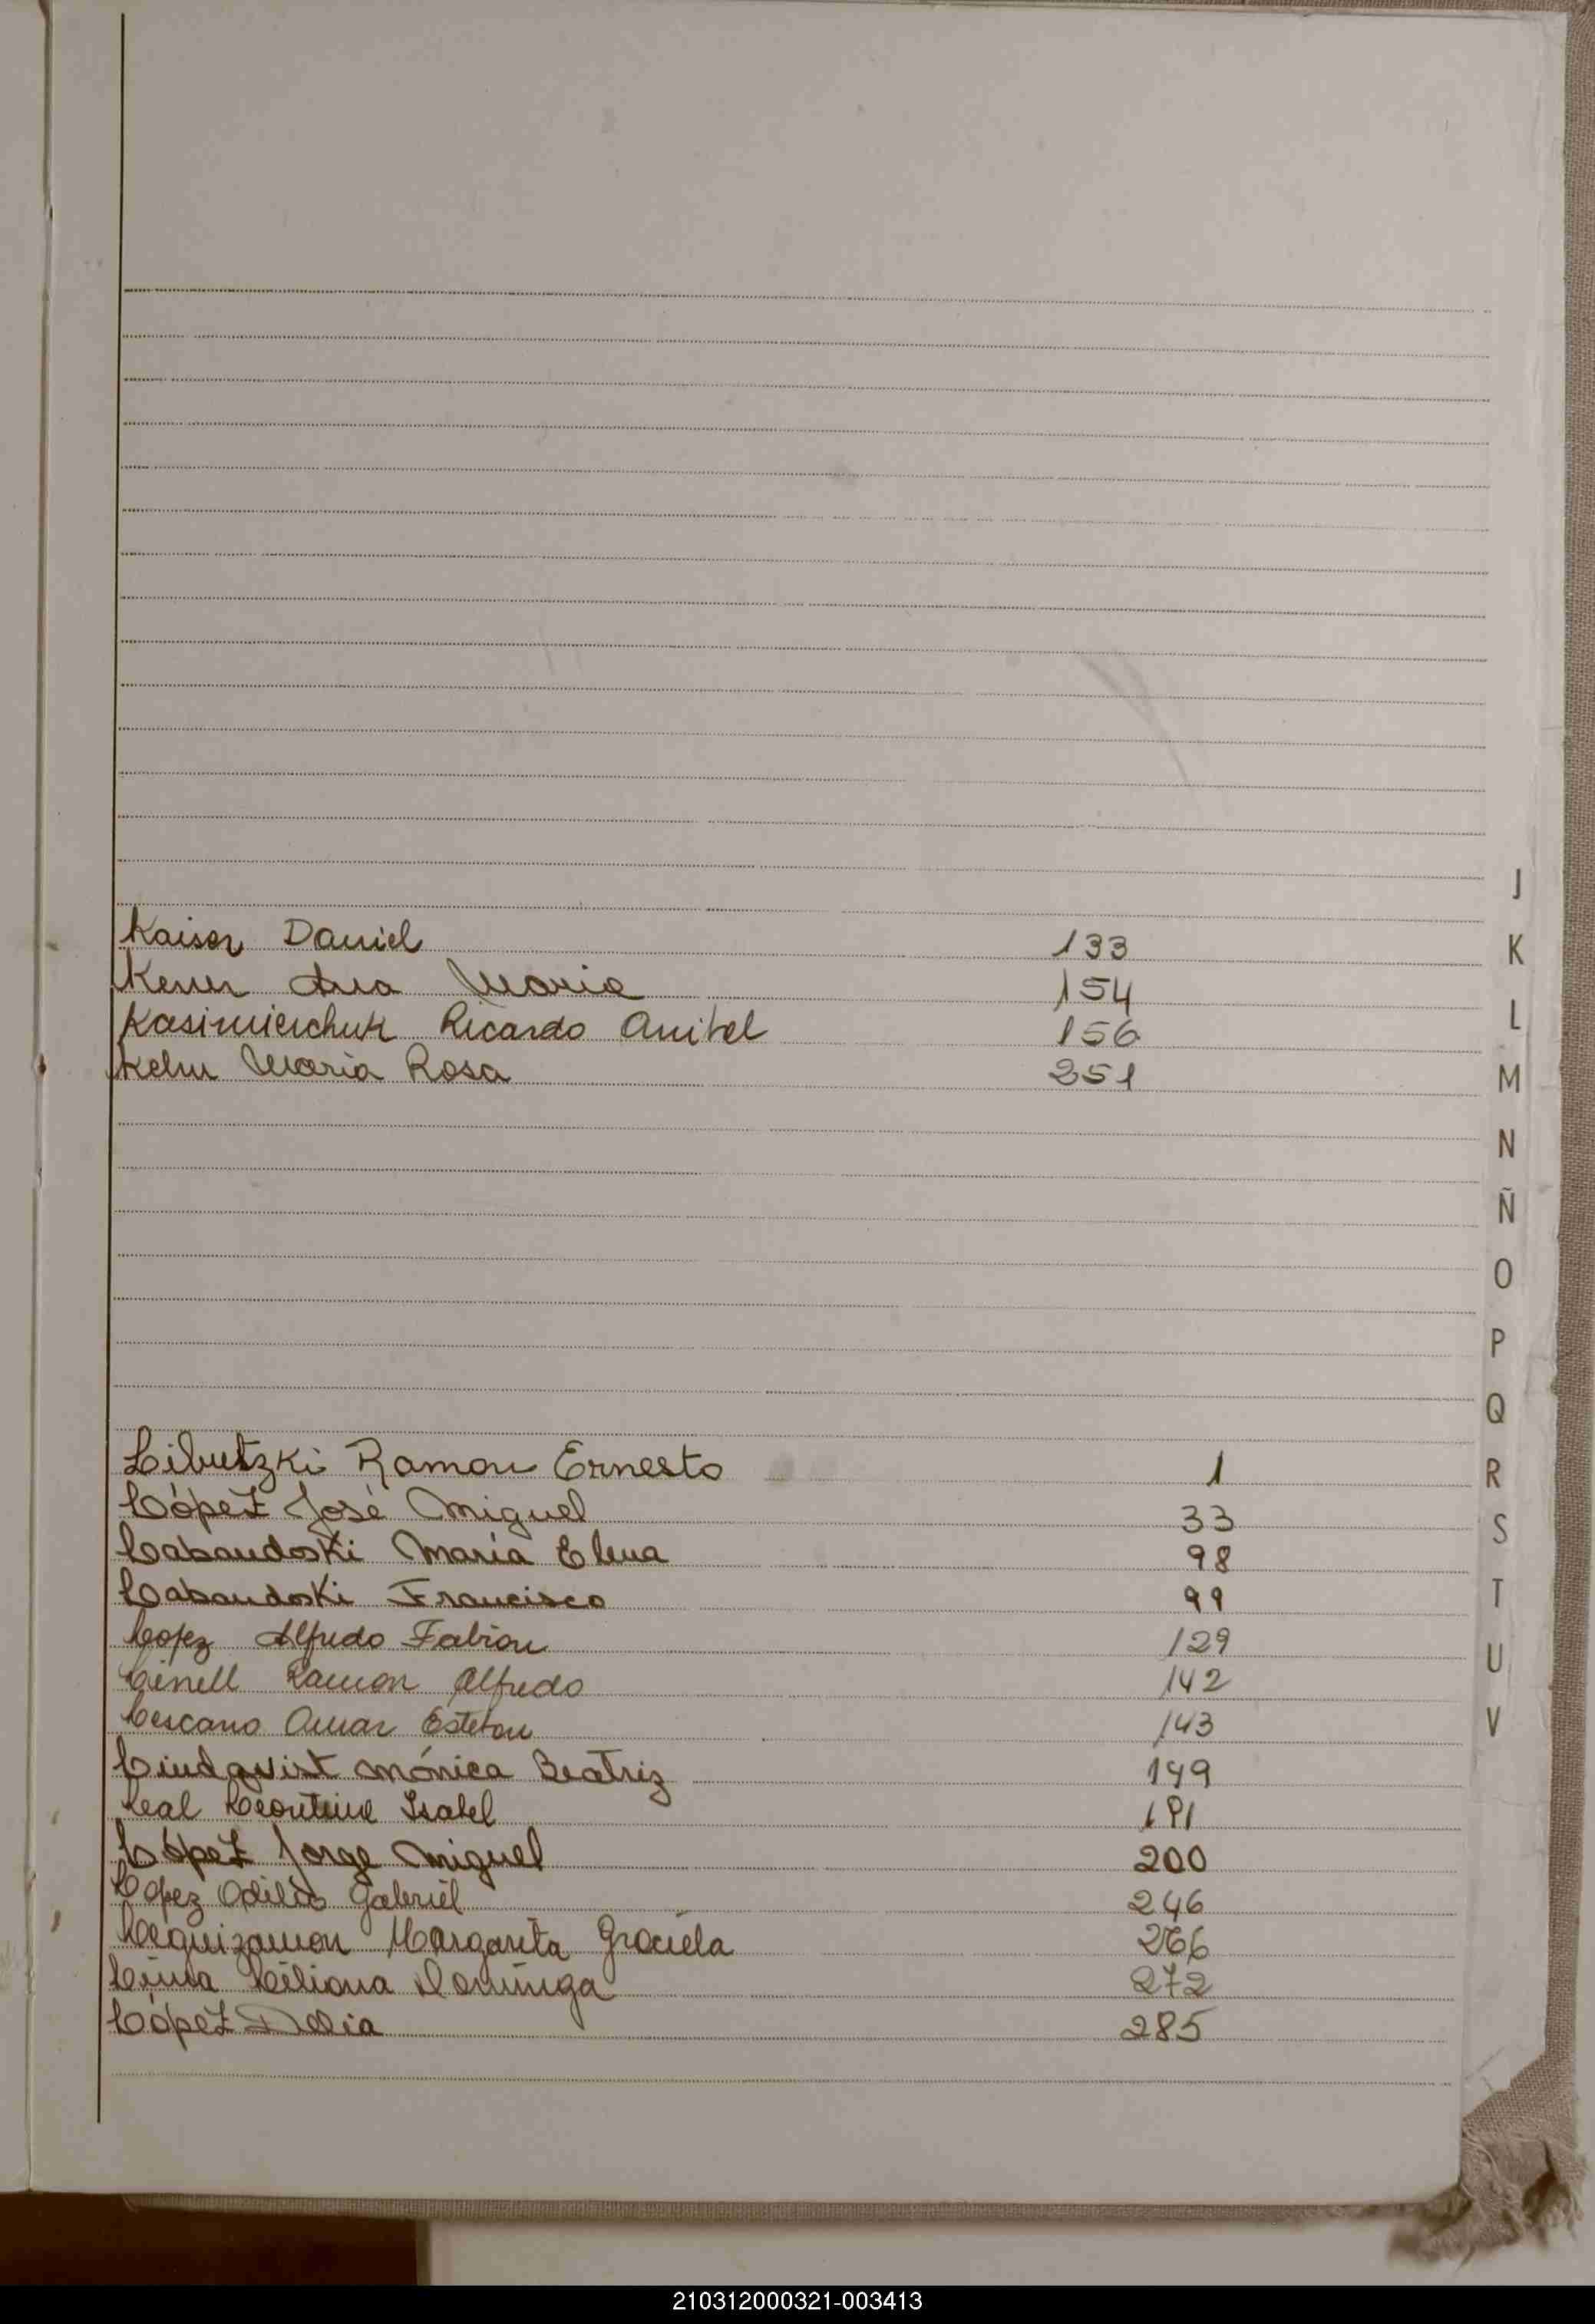 Kaiser Daniel 133
Kerer Ana Maria 154
Kasimierchuk Ricardo Anibel 156
Kehn Maria Rosa 251
Libutzki Ramon Ernesto 1
López José Miguel 33
Labandoski María Elena 98
Labandoski Francisco 99
Lopez Alfredo Fabian 129
Linell Ramon Alfredo 142
Lescano Omar Esteban 143
Lindqvist Mónica Beatriz 149
Leal Leontine Isabel 191
López Jorge Miguel 200
Lopez Odilio Gabriel 246
Leguizamon Margarita Graciela 266
Lima Liliana Dominga 272
López Delia 285
J
K
L
M
N
Ñ
O
P
Q
R
S
T
U
V
210312000321-003413